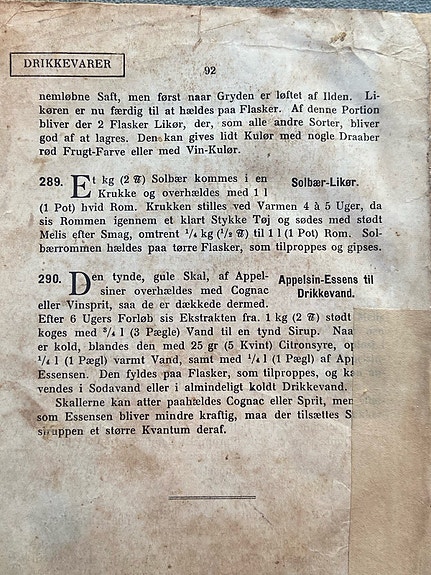 DRIKKEVARER
92
nemløbne Saft, men først naar Gryden er løftet af Ilden. Li-
køren er nu færdig til at hældes paa Flasker. Af denne Portion
bliver der 2 Flasker Likør, der, som alle andre Sorter, bliver
god af at lagres. Den kan gives lidt Kulør med nogle Draaber
rød Frugt-Farve eller med Vin-Kulør.
289. Et kg (2 ℔) Solbær kommes i en Solbær-Likør.
Krukke og overhældes med 1 l
(1 Pot) hvid Rom. Krukken stilles ved Varmen 4 à 5 Uger, da
sis Rommen igennem et klart Stykke Tøj og sødes med stødt
Melis efter Smag, omtrent ¼ kg (½ ℔) til 1 l (1 Pot) Rom. Sol-
bærrommen hældes paa tørre Flasker, som tilproppes og gipses.
290. Den tynde, gule Skal, af Appel- Appelsin-Essens til
siner overhældes med Cognac Drikkevand.
eller Vinsprit, saa de er dækkede dermed.
Efter 6 Ugers Forløb sis Ekstrakten fra. 1 kg (2 ℔) stødt
koges med ¾ l (3 Pægle) Vand til en tynd Sirup. Naa
er kold, blandes den med 25 gr (5 Kvint) Citronsyre, op
¼ l (1 Pægl) varmt Vand, samt med ¼ l (1 Pægl) af Ap
Essensen. Den fyldes paa Flasker, som tilproppes, og ka
vendes i Sodavand eller i almindeligt koldt Drikkevand.
Skallerne kan atter paahældes Cognac eller Sprit, men
som Essensen bliver mindre kraftig, maa der tilsættes S
siruppen et større Kvantum deraf.